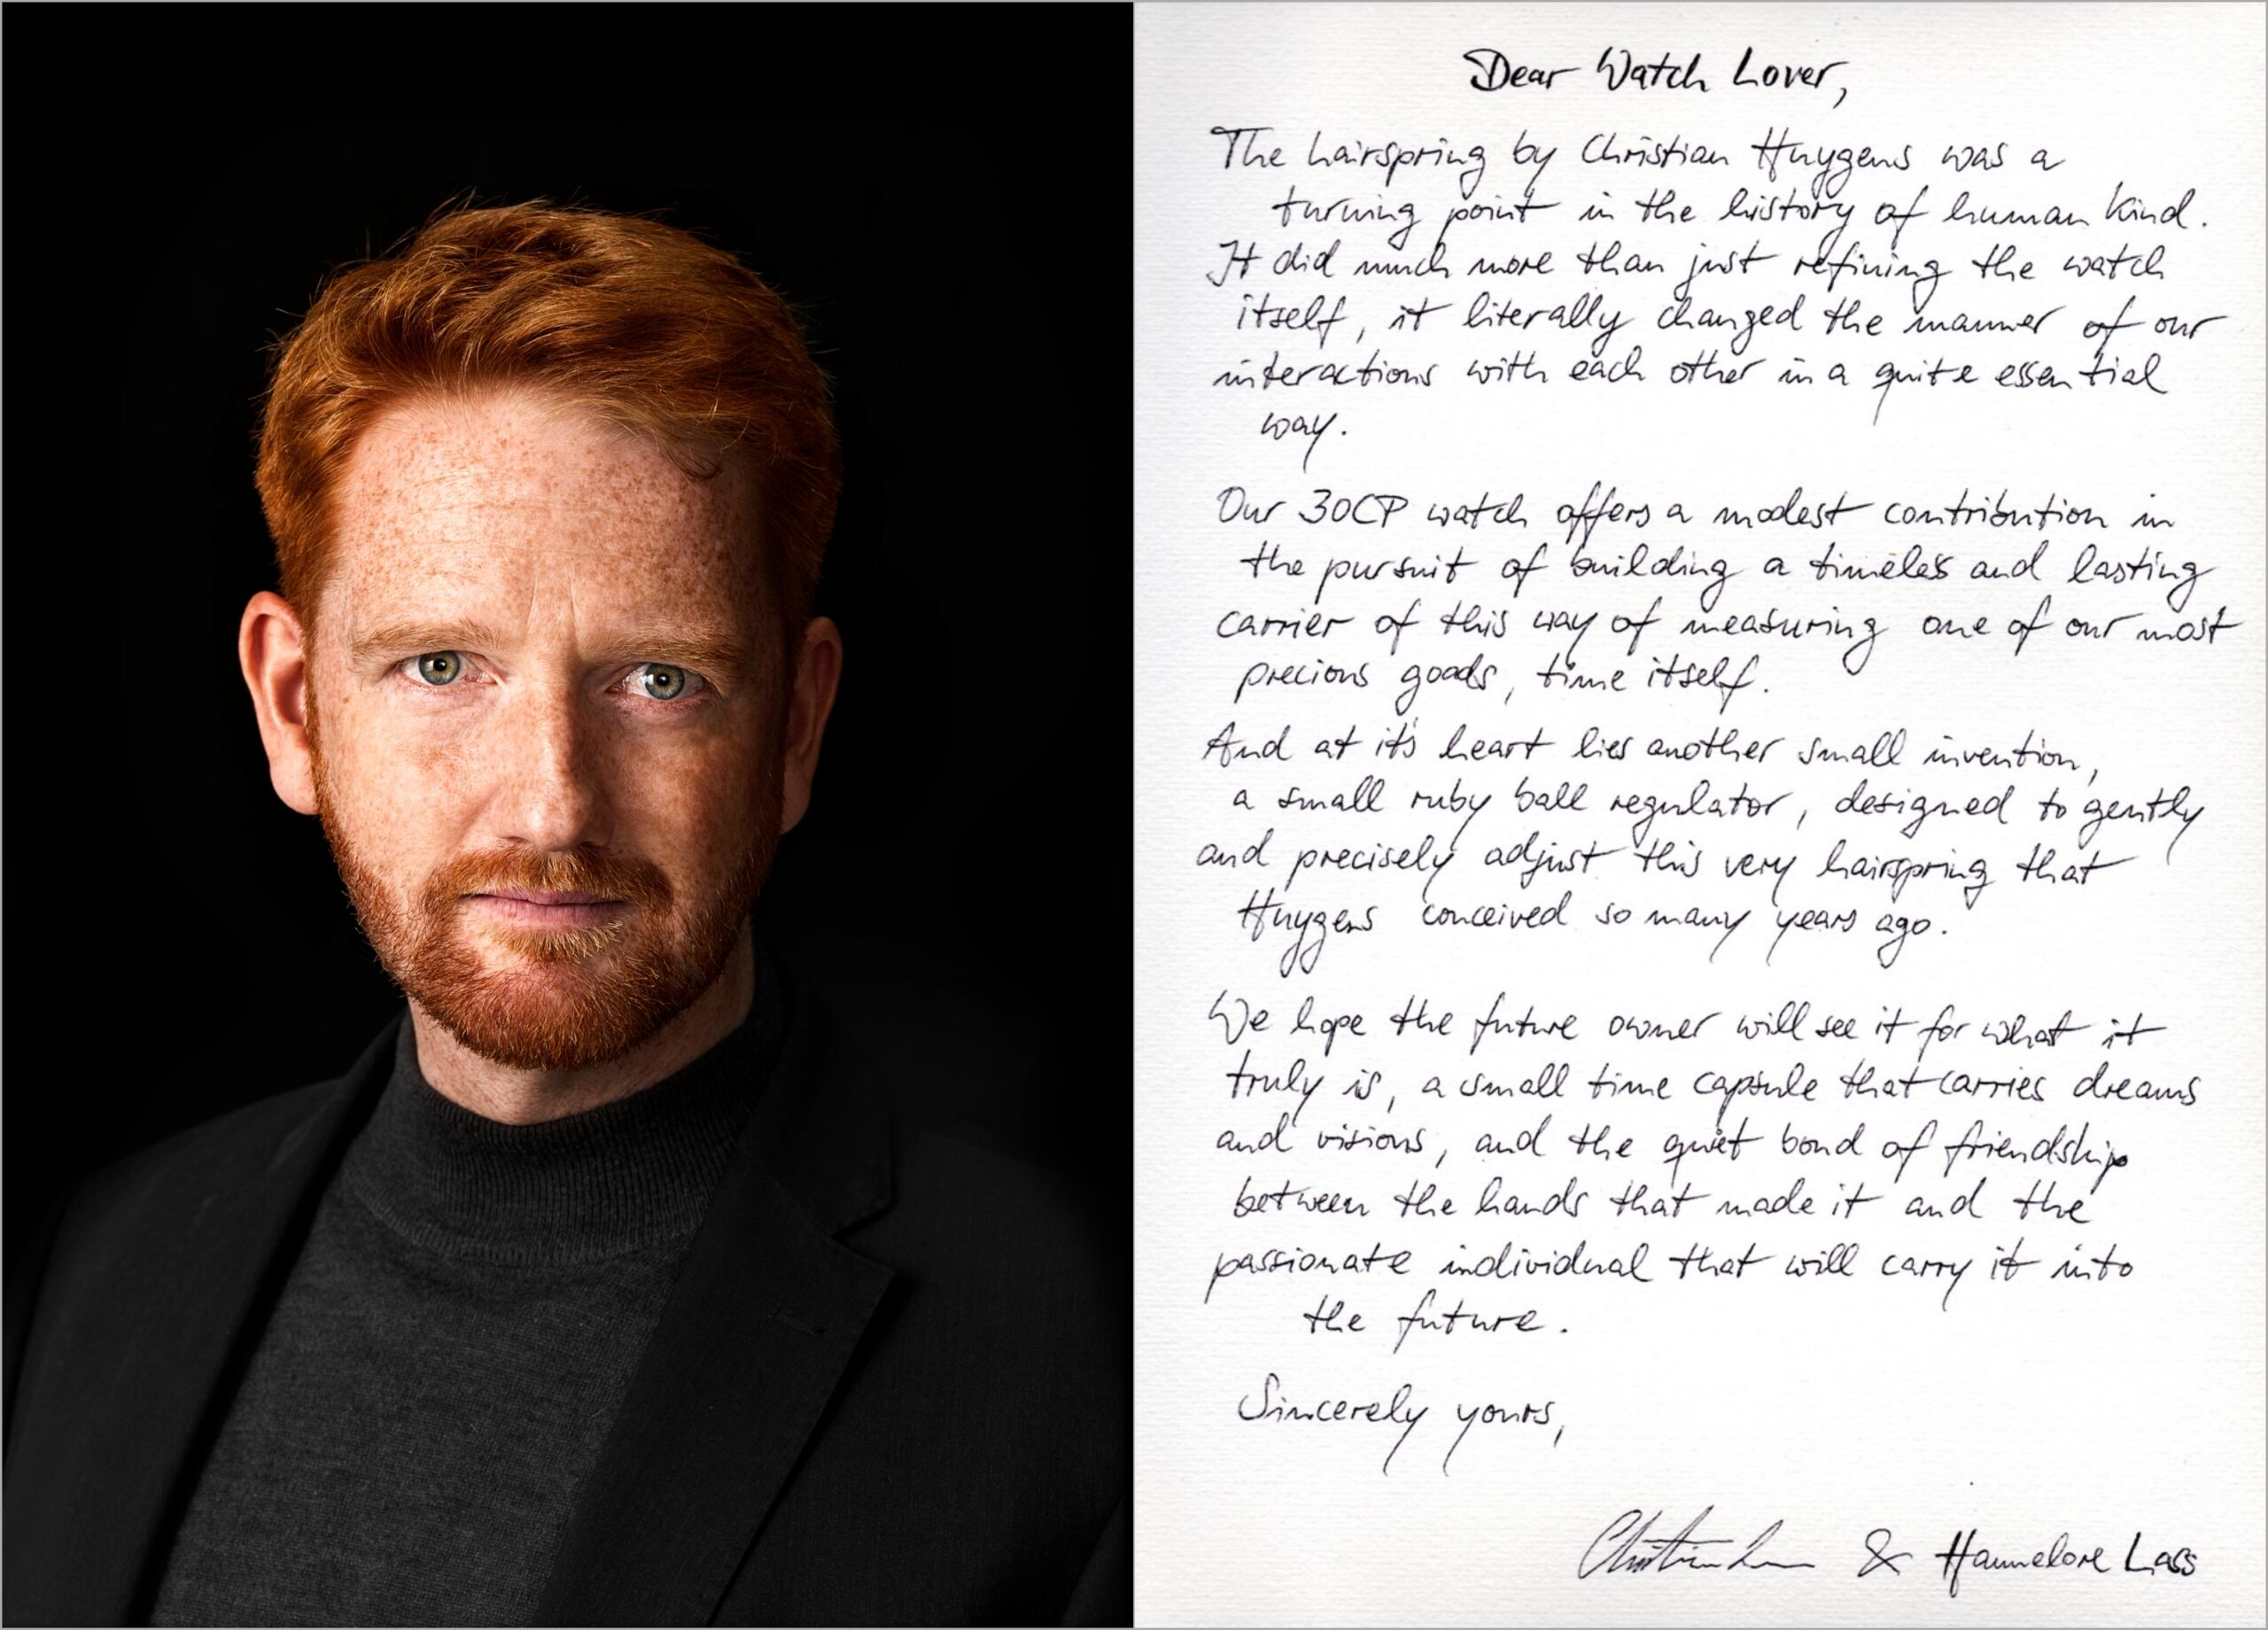 Dear Watch Lover,
The hairspring by Christian Huygens was a
turning point in the history of human kind.
It did much more than just refining the watch
itself, it literally changed the manner of our
interactions with each other in a quite essential
way.
Our 30CP watch offers a modest contribution in
the pursuit of building a timeless and lasting
carrier of this way of measuring one of our most
precious goods, time itself.
And at it's heart lies another small invention,
a small ruby ball regulator, designed to gently
and precisely adjust this very hairspring that
Huygens conceived so many years ago.
We hope the future owner will see it for what it
truly is, a small time capsule that carries dreams
and visions, and the quiet bond of friendship
between the hands that made it and the
passionate individual that will carry it into
the future.
Sincerely yours,
Christian & Hannelore Lass